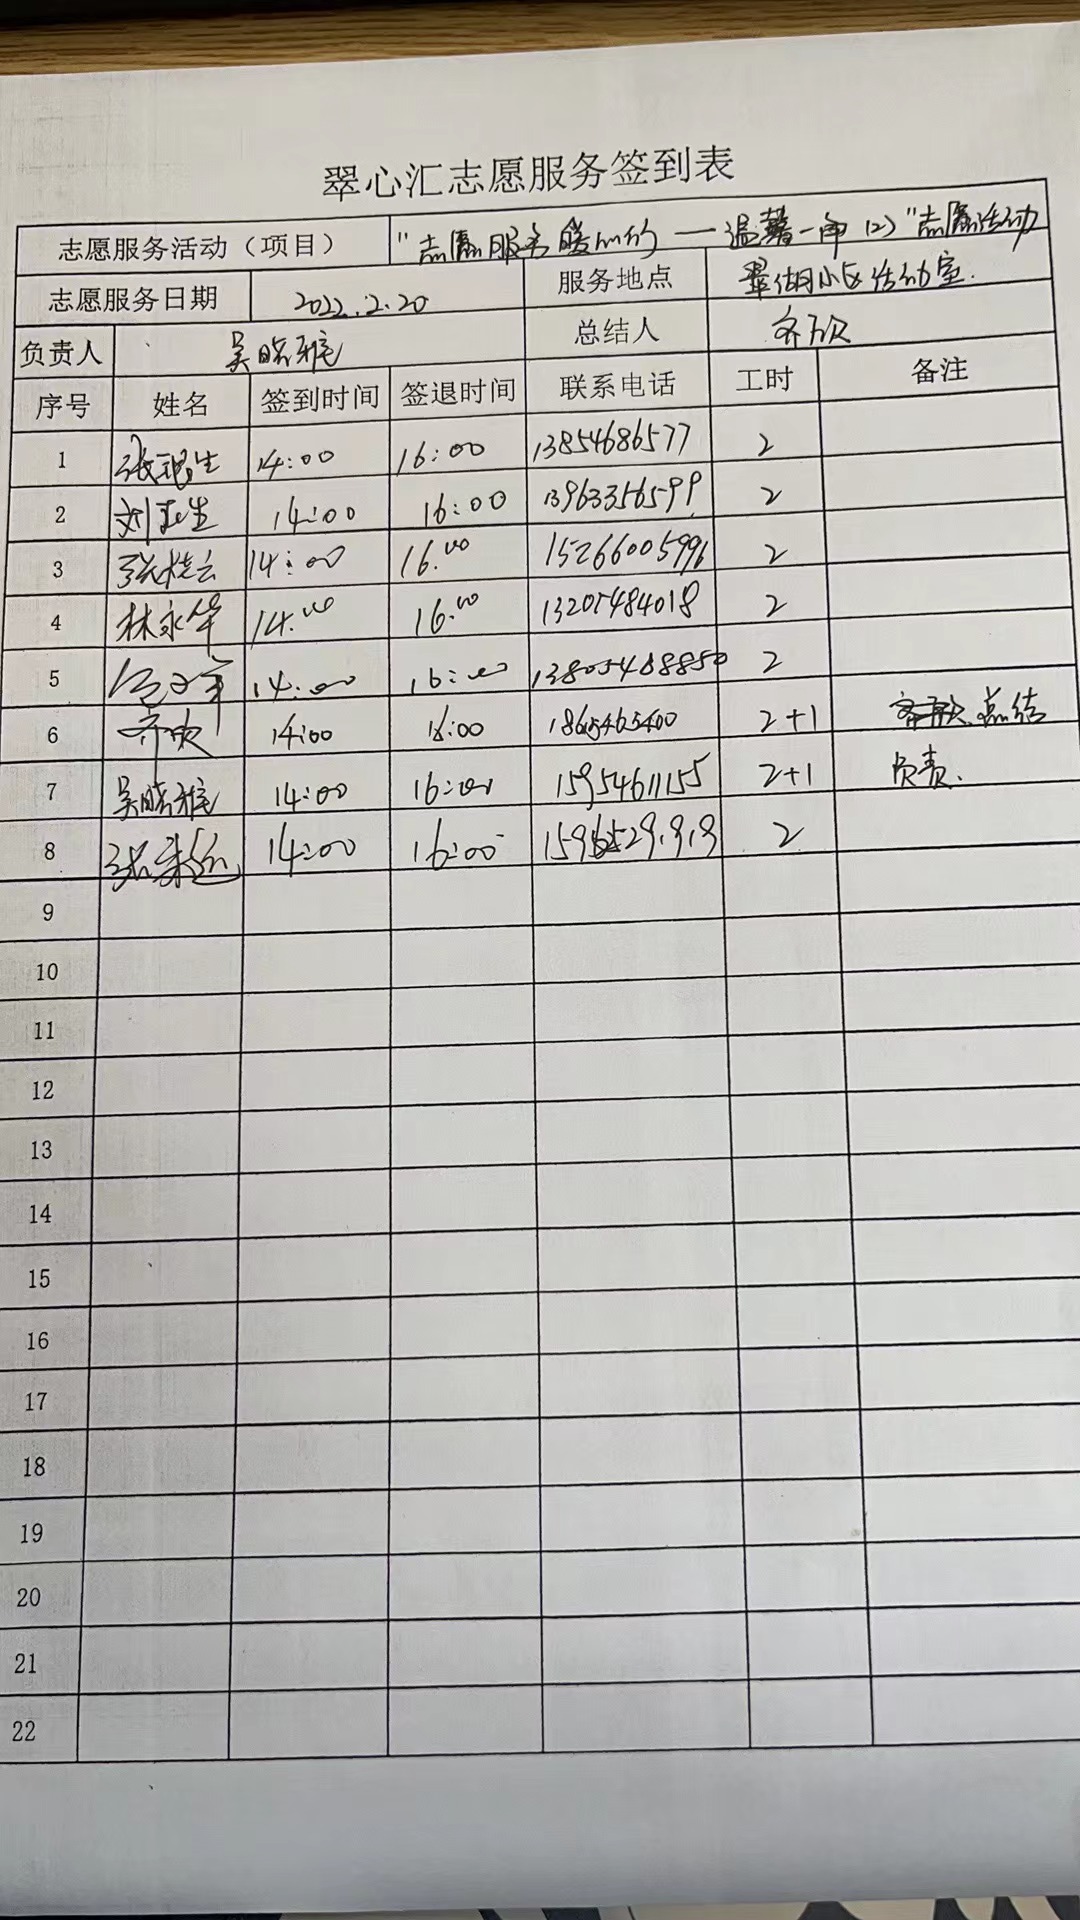 翠心汇志愿服务签到表
志愿服务活动（项目） "志愿服务暖心的一温馨一亩(2)"志愿活动
志愿服务日期 2022.2.20 服务地点 翠湖小区活动室.
负责人 吴晓雅 总结人 齐欣
序号 姓名 签到时间 签退时间 联系电话 工时 备注
1 14:00 16:00 13854686577 2
2 14:00 16:00 13963356599 2
3 14:00 16.00 15266005996 2
4 林永华 14.00 16.00 13205484018 2
5 14:00 16:00 13805468850 2
6 齐欣 14:00 16:00 2+1 总结
7 吴晓雅 14:00 16:00 15954611155 2+1 负责.
8 14:00 16:00 2
9
10
11
12
13
14
15
16
17
18
19
20
21
22